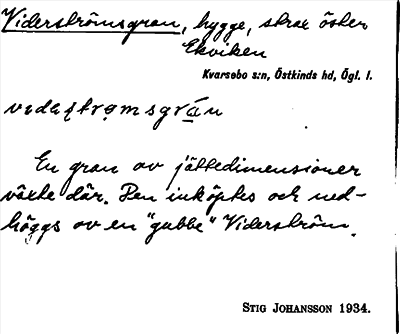 Viderströmsgran, hygge, strax öster
Ekviken
Kvarsebo s:n, Östkinds hd, Ögl. l.
vıdəʂtrømsgrán
En gran av jättedimensioner
växte där. Den inköptes och ned-
höggs av en "gubbe" Viderström.
STIG JOHANSSON 1934.